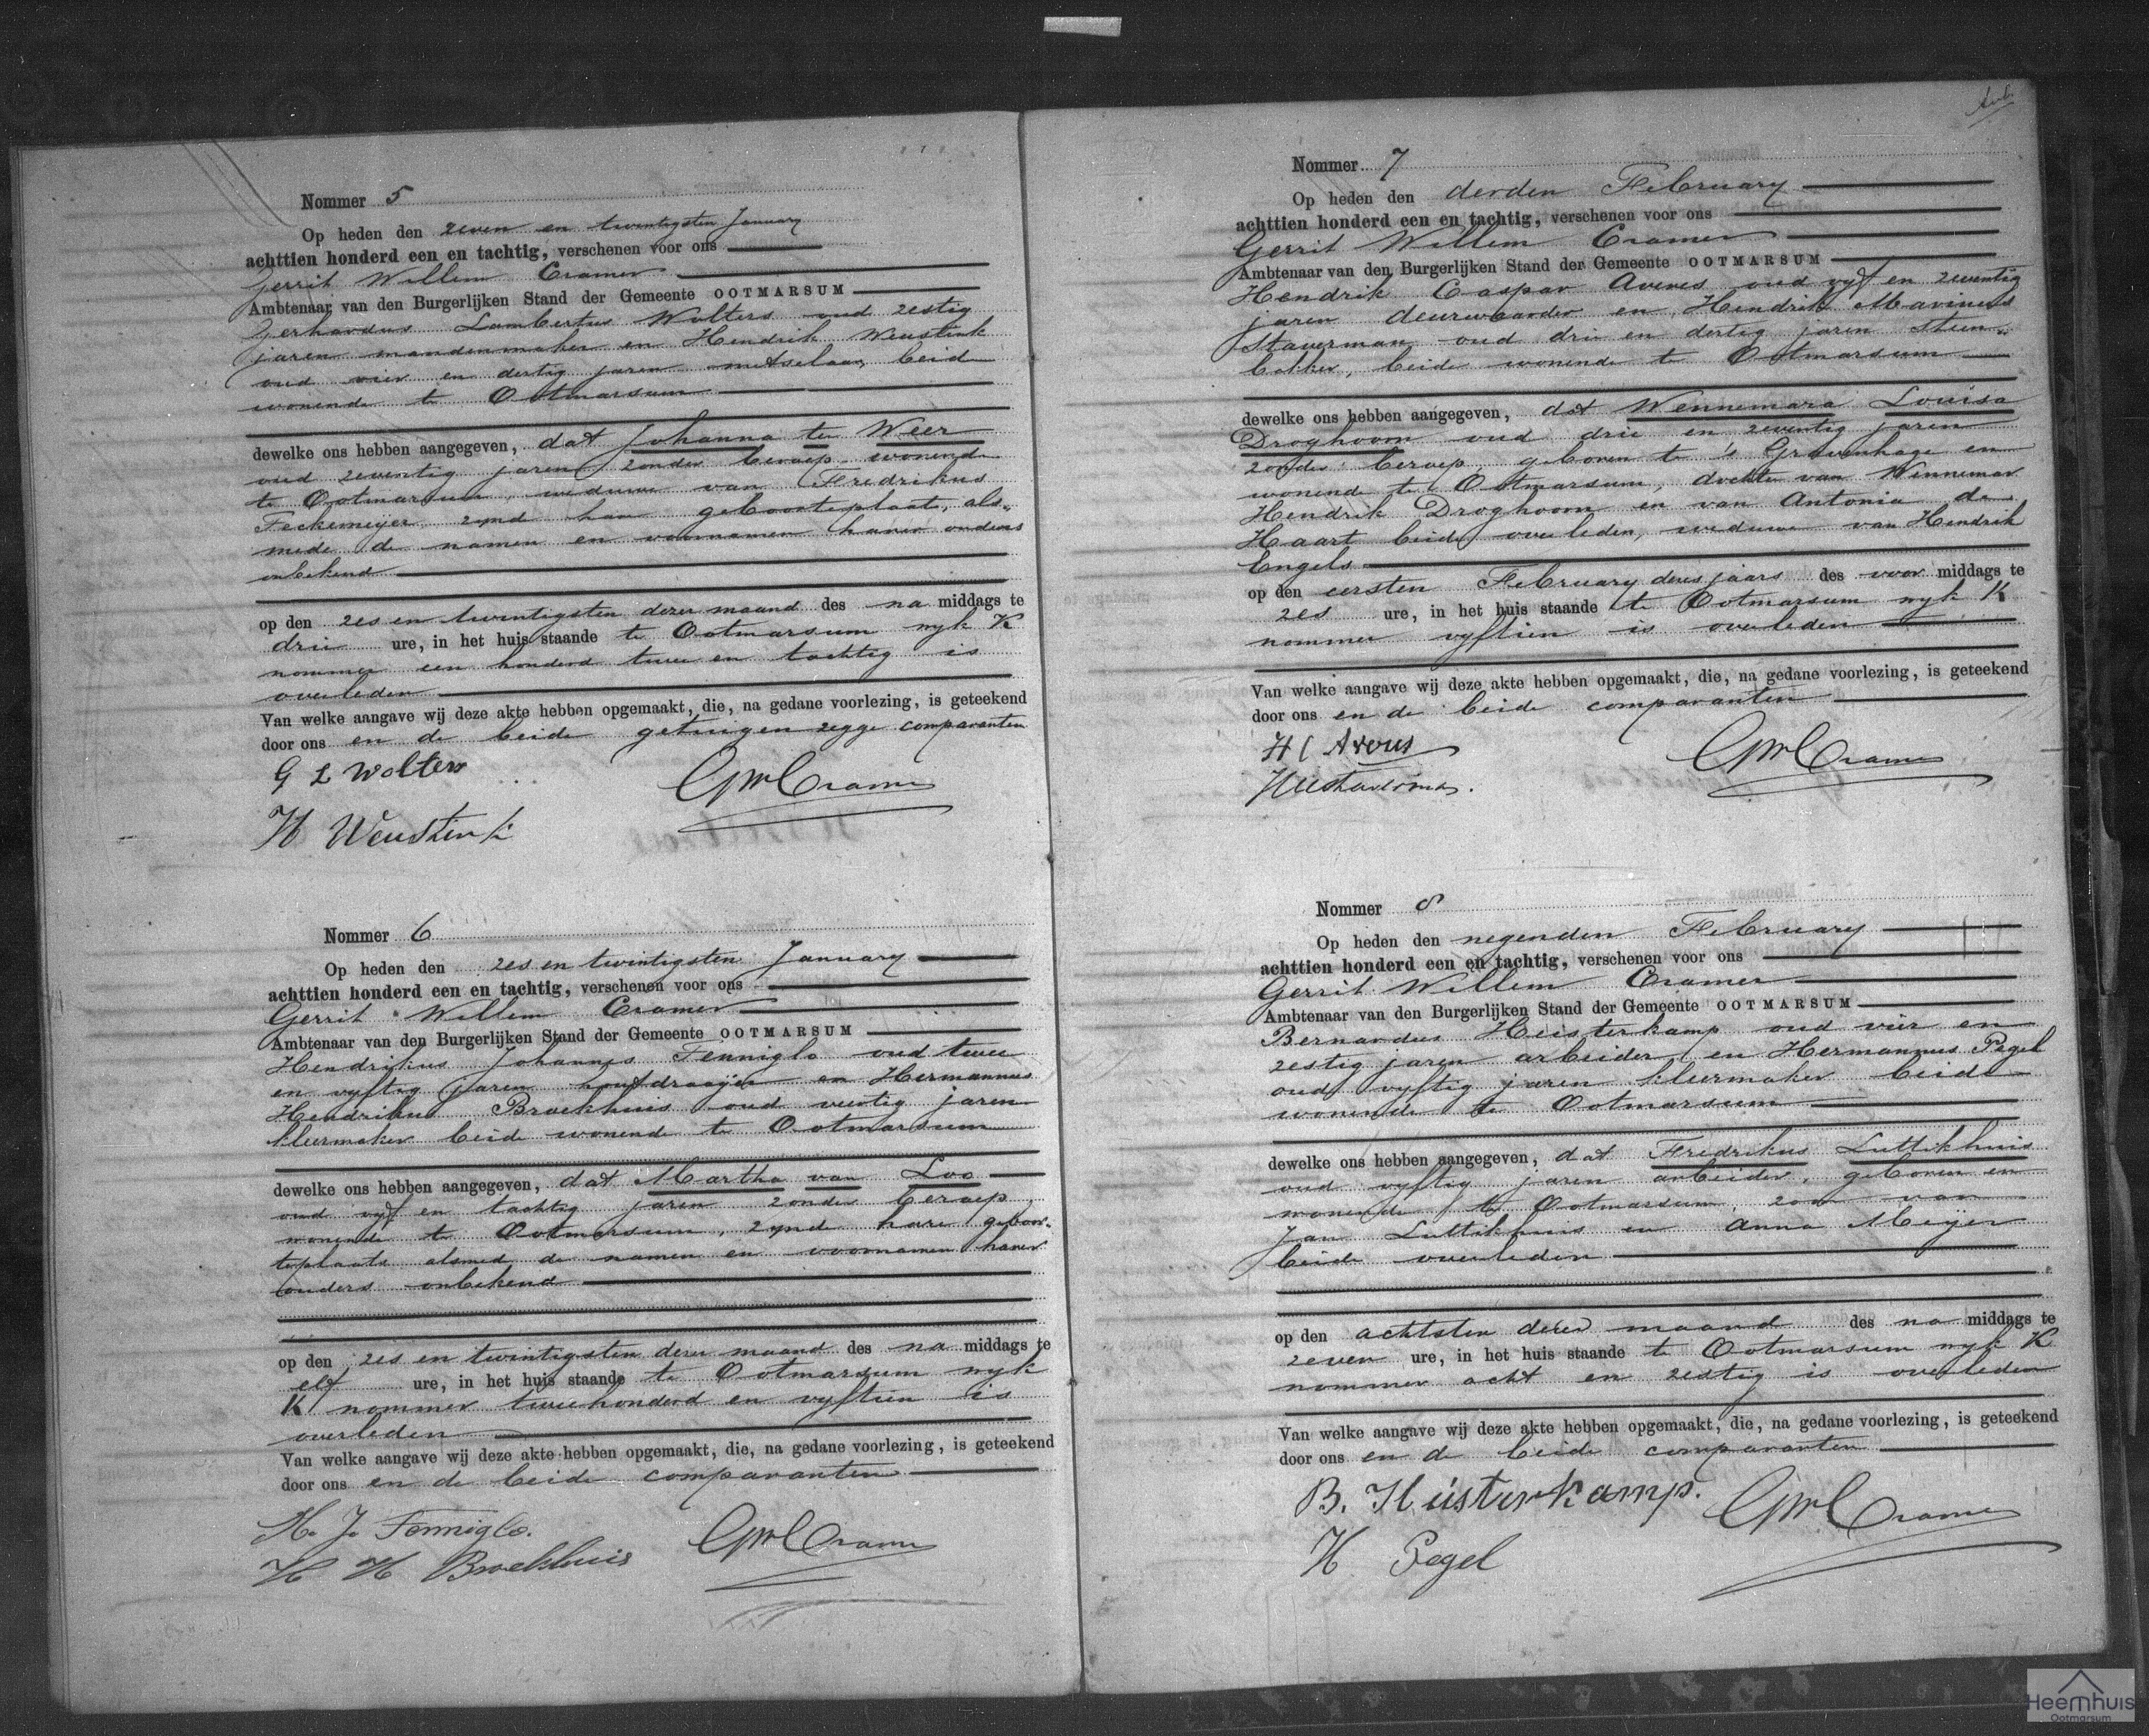 Nommer 5
Op heden den zeven en twintigsten January
achttien honderd een en tachtig, verschenen voor ons
Gerrit Willem Cramer
Ambtenaar van den Burgerlijken Stand der Gemeente OOTMARSUM
Gerhardus Lambertus Wolters oud zestig
jaren mandenmaker en Hendrik Weustink
oud vier en dertig jaren metselaar, beide
wonende te Ootmarsum
dewelke ons hebben aangegeven, dat Johanna te Weer
oud zeventig jaren zonder beroep wonende
te Ootmarsum, weduwe van Fredrikus
Feckemeijer, zynde haar geboorteplaats, als-
mede de namen en voornamen harer ouders
onbekend
op den zes en twintigsten dezer maand des na middags te
drie ure, in het huis staande te Ootmarsum wyk K
nommer een honderd twee en tachtig is
overleden
Van welke aangave wij deze akte hebben opgemaakt, die, na gedane voorlezing, is geteekend
door ons en de beide getuigen zegge comparanten
G L Wolters
GWCramer
H Weustink
Nommer 6
Op heden den zes en twintigsten January
achttien honderd een en tachtig, verschenen voor ons
Gerrit Willem Cramer
Ambtenaar van den Burgerlijken Stand der Gemeente OOTMARSUM
Hendrikus Johannes Fenniglo oud twee
en vyftig jaren houtdraaijer en Hermannus
Hendrikus Broekhuis oud veertig jaren
kleermaker beide wonende te Ootmarsum
dewelke ons hebben aangegeven, dat Martha van Loo
oud vyf en tachtig jaren zonder beroep,
wonende te Ootmarsum, zynde hare geboor-
teplaats alsmede de namen en voornamen harer
ouders onbekend
op den zes en twintigsten dezer maand des na middags te
elf ure, in het huis staande te Ootmarsum wyk
K nommer tweehonderd en vyftien is
overleden
Van welke aangave wij deze akte hebben opgemaakt, die, na gedane voorlezing, is geteekend
door ons en de beide comparanten
H. J. Fenniglo.
GWCramer
H H Broekhuis
Nommer 7
Op heden den derden February
achttien honderd een en tachtig, verschenen voor ons
Gerrit Willem Cramer
Ambtenaar van den Burgerlijken Stand der Gemeente OOTMARSUM
Hendrik Caspar oud vyf en zeventig
jaren deurwaarder en Hendrik Marinus
Staverman oud drie en dertig jaren steen-
bakker, beide wonende te Ootmarsum
dewelke ons hebben aangegeven, dat Wennemara Louisa
Droghoorn oud drie en zeventig jaren
zonder beroep, geboren te 's Gravenhage en
wonende te Ootmarsum, dochter van Wennemar
Hendrik Droghoorn en van Antonia de
Haart beide overleden, weduwe van Hendrik
Engels
op den eersten February dezes jaars des voor middags te
zes ure, in het huis staande te Ootmarsum wyk K
nommer vyftien is overleden
Van welke aangave wij deze akte hebben opgemaakt, die, na gedane voorlezing, is geteekend
door ons en de beide comparanten
GWCramer
HMStaverman.
Nommer 8
Op heden den negenden February
achttien honderd een en tachtig, verschenen voor ons
Gerrit Willem Cramer
Ambtenaar van den Burgerlijken Stand der Gemeente OOTMARSUM
Bernardus Heisterkamp oud vier en
zestig jaren arbeider, en Hermannus Pegel
oud vyftig jaren kleermaker beide
wonende te Ootmarsum
dewelke ons hebben aangegeven, dat Fredrikus Luttikhuis
oud vyftig jaren arbeider, geboren en
wonende te Ootmarsum, zoon van
Jan Luttikhuis en Anna Meijer
beide overleden
op den achtsten dezer maand des na middags te
zeven ure, in het huis staande te Ootmarsum wyk K
nommer acht en zestig is overleden
Van welke aangave wij deze akte hebben opgemaakt, die, na gedane voorlezing, is geteekend
door ons en de beide comparanten
B. Heisterkamp.
GWCramer
H Pegel
Heemhuis
Ootmarsum